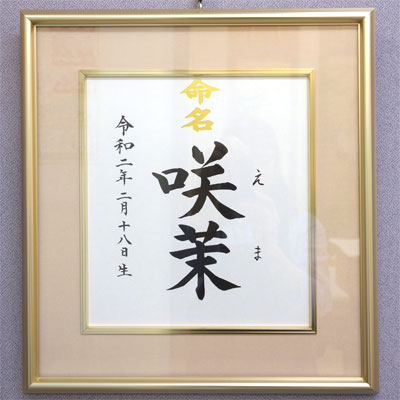 命名
えま
咲茉
令和二年二月十八日生